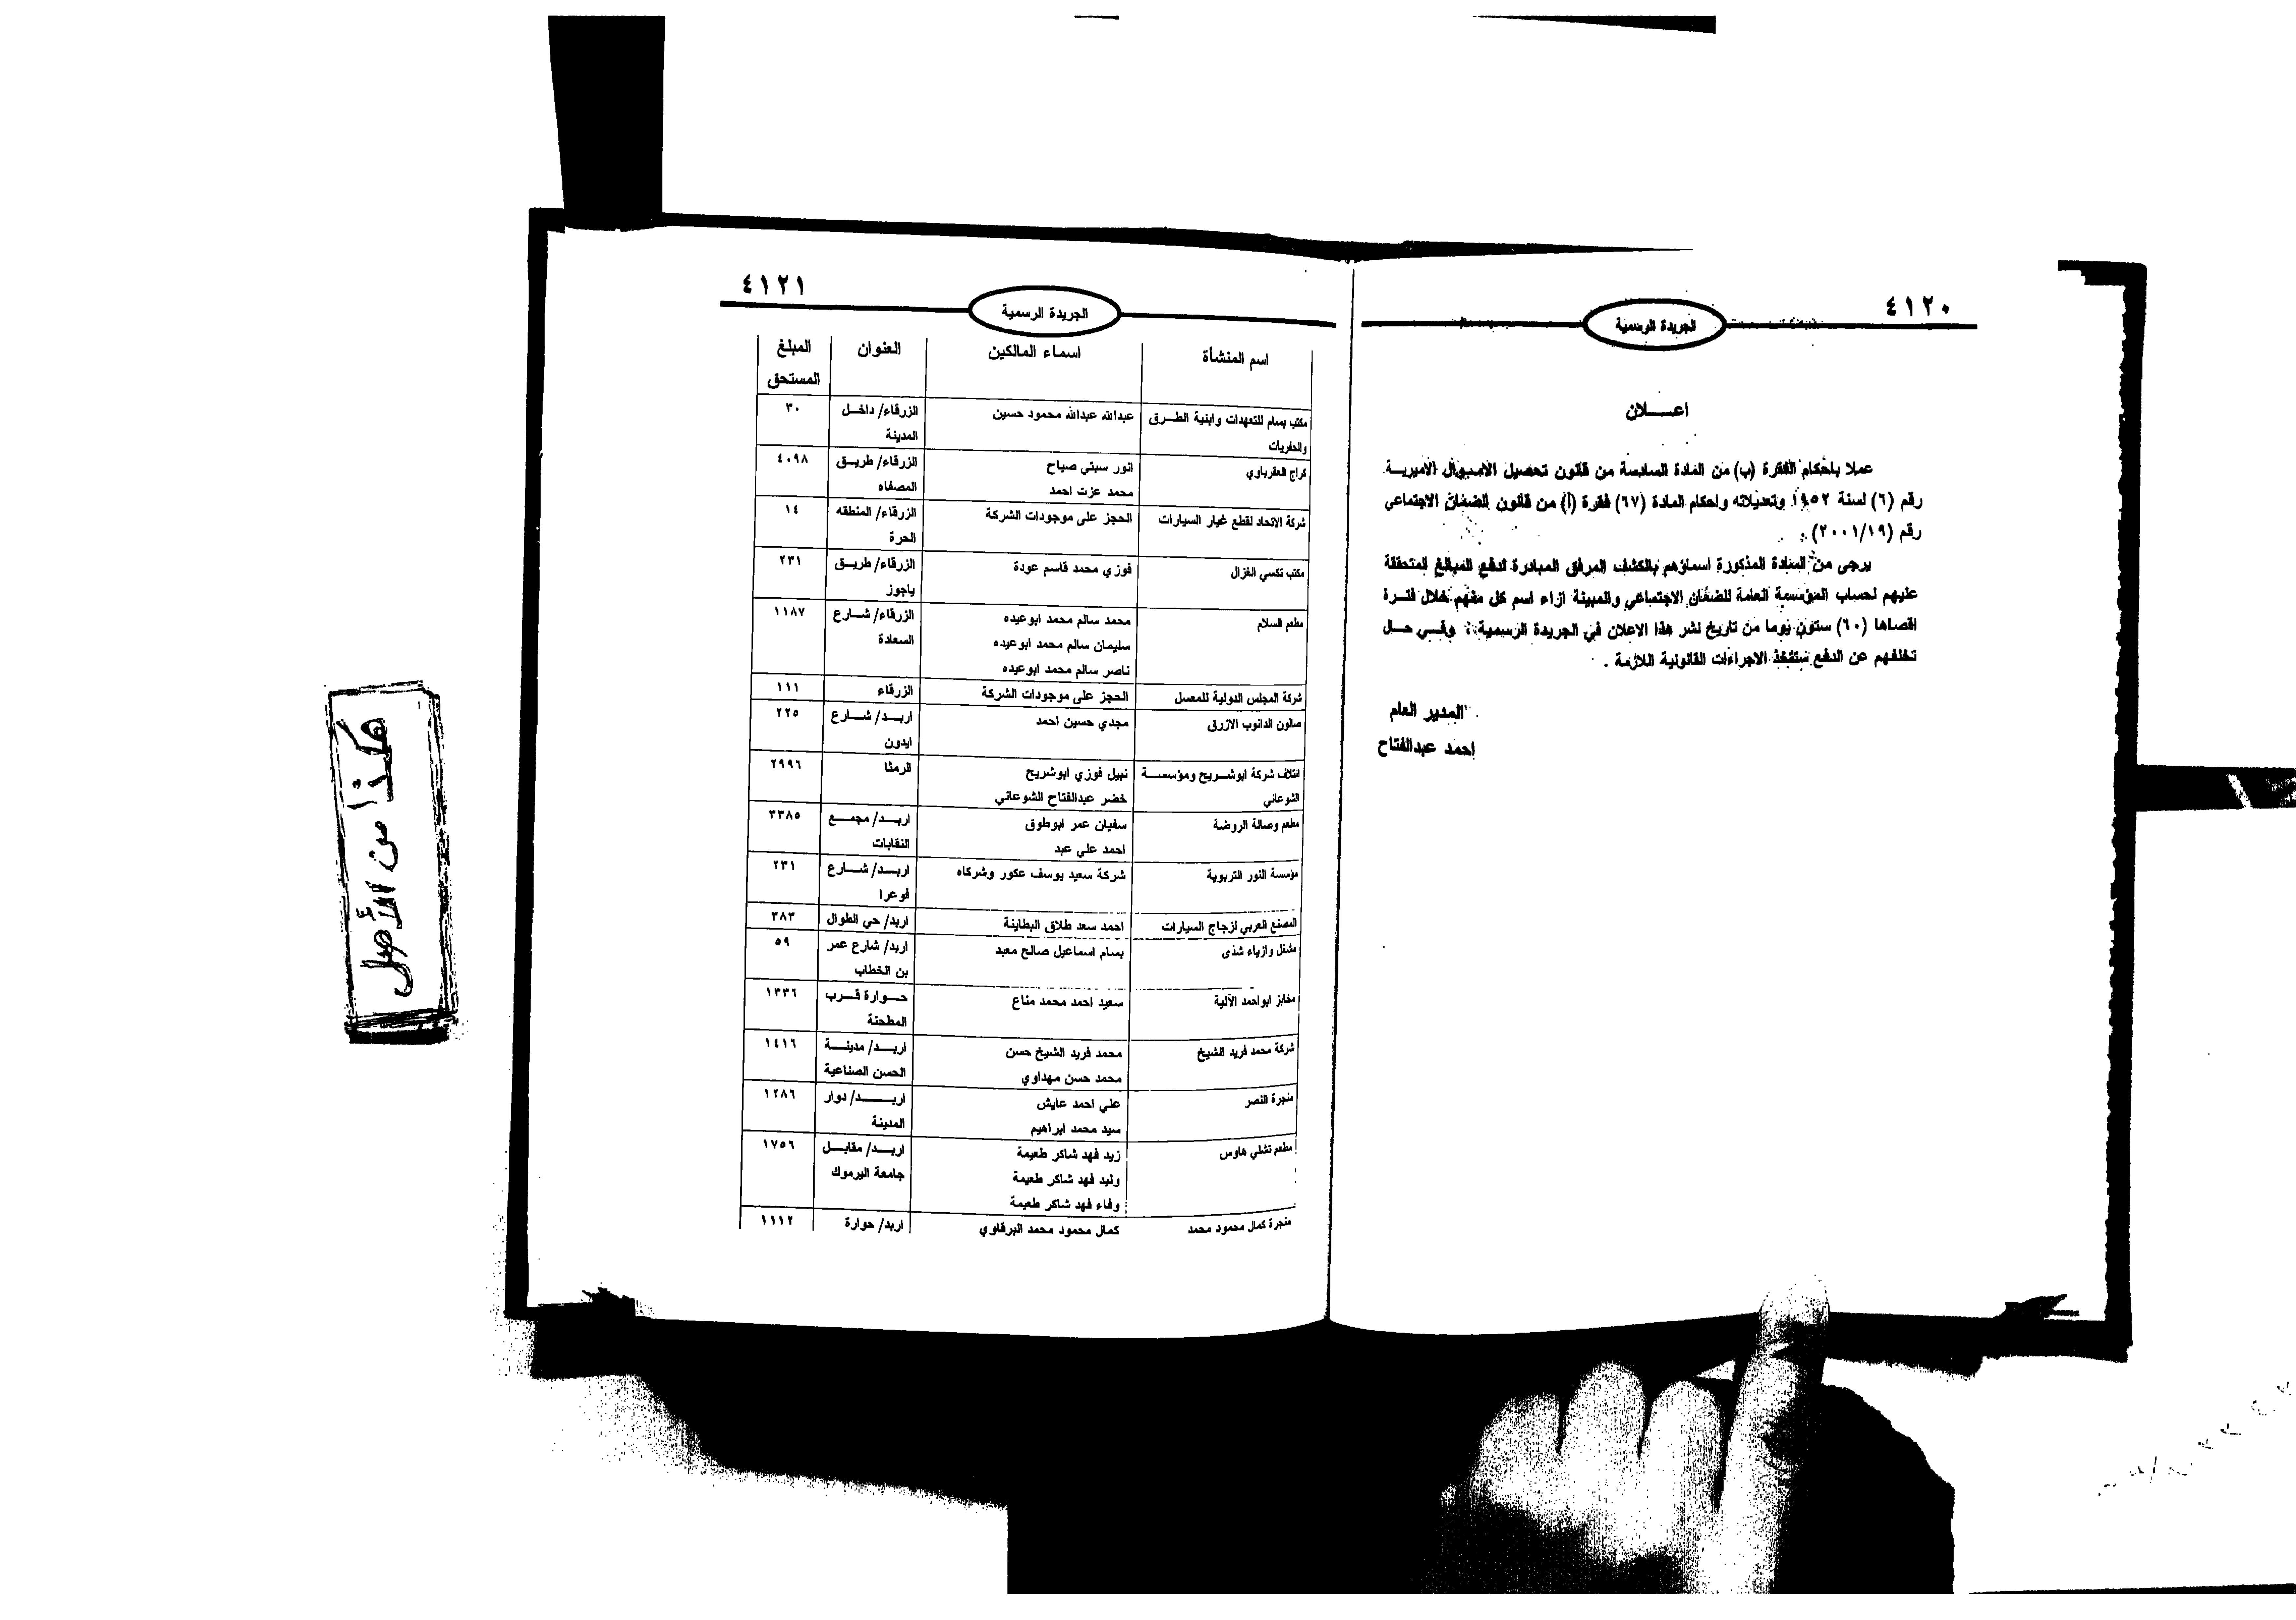 ٤١٢٠
الجريدة الرسمية
اعـــلان
عملا باحكام الفقرة (ب) من المادة السادسة من قانون تحصيل الاموال الاميرية
رقم (٦) لسنة ١٩٥٢ وتعديلاته واحكام المادة (٦٧) فقرة (أ) من قانون الضمان الاجتماعي
رقم (٢٠٠١/١٩) .
يرجى من السادة المذكورة اسماؤهم بالكشف المرفق المبادرة لدفع المبالغ المتحققة
عليهم لحساب المؤسسة العامة للضمان الاجتماعي والمبينة ازاء اسم كل منهم خلال فترة
اقصاها (٦٠) ستون يوما من تاريخ نشر هذا الاعلان في الجريدة الرسمية ، وفي حال
تخلفهم عن الدفع ستتخذ الاجراءات القانونية اللازمة .
المدير العام
احمد عبدالفتاح
٤١٢١
الجريدة الرسمية
اسم المنشأة اسماء المالكين العنوان المبلغ
المستحق
مكتب بسام للتعهدات وابنية الطرق عبدالله عبدالله محمود حسين الزرقاء/ داخل ٣٠
والحفريات المدينة
كراج العقرباوي انور سبتي صباح الزرقاء/ طريق ٤٠٩٨
محمد عزت احمد المصفاه
شركة الاتحاد لقطع غيار السيارات الحجز على موجودات الشركة الزرقاء/ المنطقه ١٤
الحرة
مكتب تكسي الغزال فوزي محمد قاسم عودة الزرقاء/ طريق ٢٣١
ياجوز
مطعم السلام محمد سالم محمد ابوعيده الزرقاء/ شارع ١١٨٧
سليمان سالم محمد ابوعيده السعادة
ناصر سالم محمد ابوعيده
شركة المجلس الدولية للمعسل الحجز على موجودات الشركة الزرقاء ١١١
صالون الدانوب الازرق مجدي حسين احمد اربد/ شارع ٢٢٥
ايدون
ائتلاف شركة ابوشريح ومؤسسة نبيل فوزي ابوشريح الرمثا ٢٩٩٦
الشوعاني خضر عبدالفتاح الشوعاني
مطعم وصالة الروضة سفيان عمر ابوطوق اربد/ مجمع ٣٣٨٥
احمد علي عبد النقابات
مؤسسة النور التربوية شركة سعيد يوسف عكور وشركاه اربد/ شارع ٢٣١
فوعرا
المصنع العربي لزجاج السيارات احمد سعد طلاق البطاينة اربد/ حي الطوال ٣٨٣
مشغل وازياء شذى بسام اسماعيل صالح معبد اربد/ شارع عمر ٥٩
بن الخطاب
مخابز ابواحمد الآلية سعيد احمد محمد مناع حوارة قرب ١٣٣٦
المطحنة
شركة محمد فريد الشيخ محمد فريد الشيخ حسن اربد/ مدينة ١٤١٦
محمد حسن مهداوي الحسن الصناعية
منجرة النصر علي احمد عايش اربد/ دوار ١٢٨٦
سيد محمد ابراهيم المدينة
مطعم تشلي هاوس زيد فهد شاكر طعيمة اربد/ مقابل ١٧٥٦
وليد فهد شاكر طعيمة جامعة اليرموك
وفاء فهد شاكر طعيمة
منجرة كمال محمود محمد كمال محمود محمد البرقاوي اربد/ حوارة ١١١٢
هكذا من الأصل